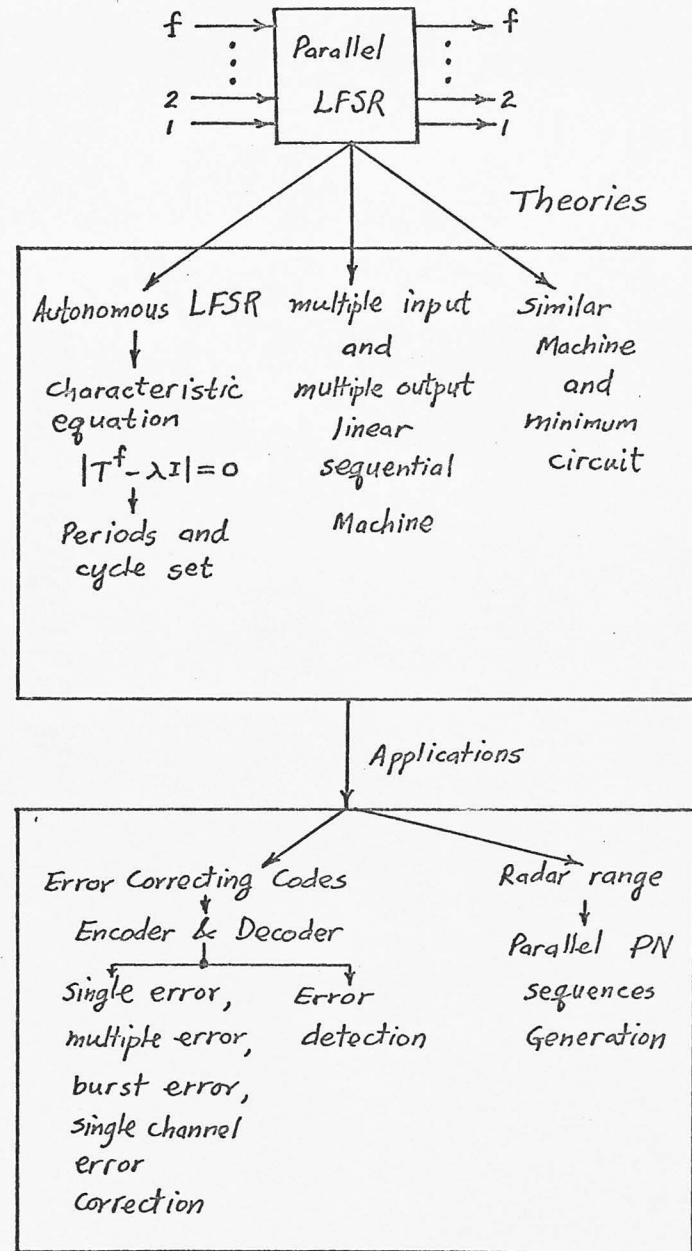 f f
Parallel
LFSR
2 2
1 1
Theories
Autonomous LFSR
characteristic
equation
|T^f - λI| = 0
Periods and
cycle set
multiple input
and
multiple output
linear
sequential
Machine
Similar
Machine
and
minimum
circuit
Applications
Error Correcting Codes
Encoder & Decoder
single error,
multiple error,
burst error,
single channel
error
correction
Error
detection
Radar range
Parallel PN
sequences
Generation